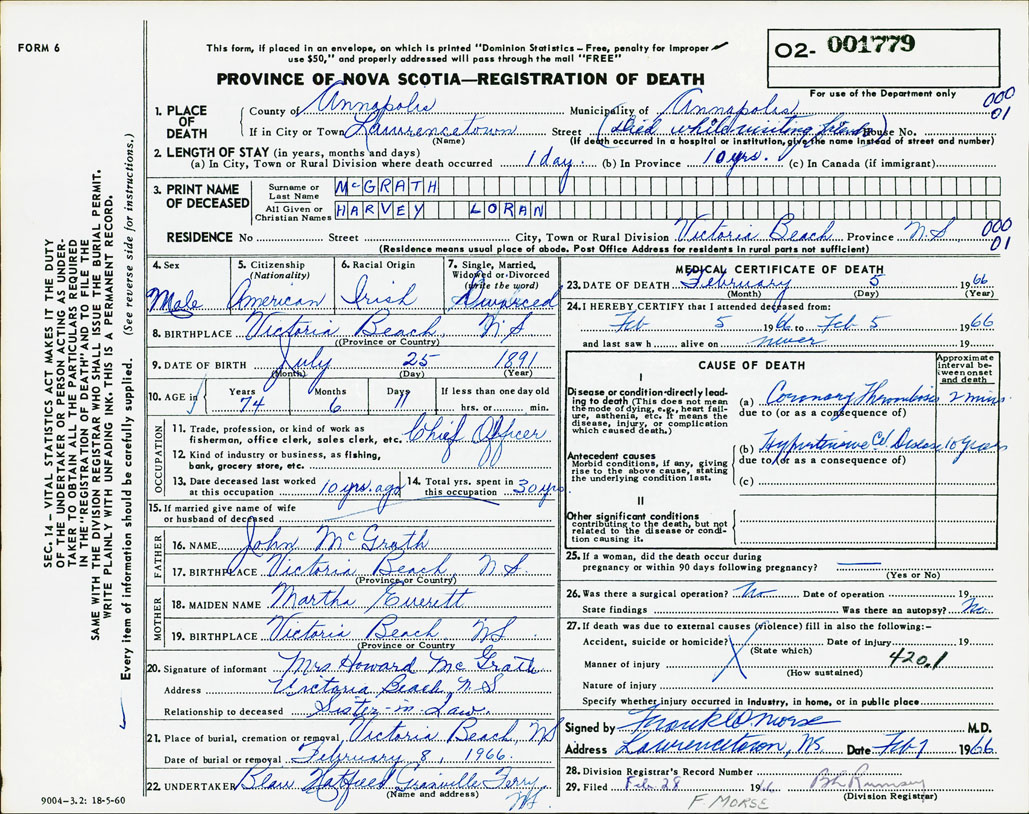 FORM 6
This form, if placed in an envelope, on which is printed "Dominion Statistics – Free, penalty for improper
use $50," and properly addressed will pass through the mail "FREE"
PROVINCE OF NOVA SCOTIA—REGISTRATION OF DEATH
O2- 001779
For use of the Department only
000
01
1. PLACE OF DEATH
County of Annapolis Municipality of Annapolis
If in City or Town Lawrencetown Street (Died while visiting friends) House No.
(Name) (If death occurred in a hospital or institution, give the name instead of street and number)
2. LENGTH OF STAY (in years, months and days)
(a) In City, Town or Rural Division where death occurred 1 day. (b) In Province 10 yrs. (c) In Canada (if immigrant)
3. PRINT NAME OF DECEASED
Surname or Last Name McGRATH
All Given or Christian Names HARVEY LORAN
RESIDENCE No Street City, Town or Rural Division Victoria Beach Province N.S
000
01
(Residence means usual place of abode. Post Office Address for residents in rural parts not sufficient)
4. Sex Male
5. Citizenship (Nationality) American
6. Racial Origin Irish
7. Single, Married, Widowed or Divorced (write the word) Divorced
8. BIRTHPLACE Victoria Beach N S
(Province or Country)
9. DATE OF BIRTH July 25 1891
(Month) (Day) (Year)
10. AGE in Years 74 Months 6 Days 11 If less than one day old hrs. or min.
OCCUPATION
11. Trade, profession, or kind of work as
fisherman, office clerk, sales clerk, etc. Chief Officer
12. Kind of industry or business, as fishing,
bank, grocery store, etc.
13. Date deceased last worked at this occupation 10 yrs. ago
14. Total yrs. spent in this occupation 30 yrs
15. If married give name of wife
or husband of deceased
FATHER
16. NAME John McGrath
17. BIRTHPLACE Victoria Beach, N. S.
(Province or Country)
MOTHER
18. MAIDEN NAME Martha Everett
19. BIRTHPLACE Victoria Beach NS
(Province or Country)
20. Signature of informant Mrs Howard McGrath
Address Victoria Beach, N S
Relationship to deceased Sister-in-Law.
21. Place of burial, cremation or removal Victoria Beach, NS
Date of burial or removal February 8, 1966
22. UNDERTAKER Granville Ferry
(Name and address) NS.
MEDICAL CERTIFICATE OF DEATH
23. DATE OF DEATH February 5 1966
(Month) (Day) (Year)
24. I HEREBY CERTIFY that I attended deceased from:
Feb 5 1966 to Feb 5 1966
and last saw h alive on never 19
CAUSE OF DEATH
Approximate interval between onset and death
I
Disease or condition directly leading to death (This does not mean the mode of dying, e.g., heart failure, asthenia, etc. It means the disease, injury, or complication which caused death.)
(a) Coronary Thrombosis 2 mins
due to (or as a consequence of)
Antecedent causes
Morbid conditions, if any, giving rise to the above cause, stating the underlying condition last.
(b) Hypertensive Cd. Disease 10 years
due to (or as a consequence of)
(c)
II
Other significant conditions contributing to the death, but not related to the disease or condition causing it.
25. If a woman, did the death occur during
pregnancy or within 90 days following pregnancy?
(Yes or No)
26. Was there a surgical operation? No Date of operation 19
State findings Was there an autopsy? No.
27. If death was due to external causes (violence) fill in also the following:-
Accident, suicide or homicide? Date of injury 19
(State which)
Manner of injury 420.1
(How sustained)
Nature of injury
Specify whether injury occurred in industry, in home, or in public place
Signed by Frank W Morse M.D.
Address Lawrencetown, NS. Date Feb 7 1966.
28. Division Registrar's Record Number
29. Filed Feb 28 1966
F. MORSE (Division Registrar)
9004-3.2: 18-5-60
SEC. 14 – VITAL STATISTICS ACT MAKES IT THE DUTY
OF THE UNDERTAKER OR PERSON ACTING AS UNDER-
TAKER TO OBTAIN ALL THE PARTICULARS REQUIRED
IN THE "REGISTRATION OF DEATH" AND TO FILE THE
SAME WITH THE DIVISION REGISTRAR WHO SHALL ISSUE THE BURIAL PERMIT.
WRITE PLAINLY WITH UNFADING INK. THIS IS A PERMANENT RECORD.
Every item of information should be carefully supplied. (See reverse side for instructions.)